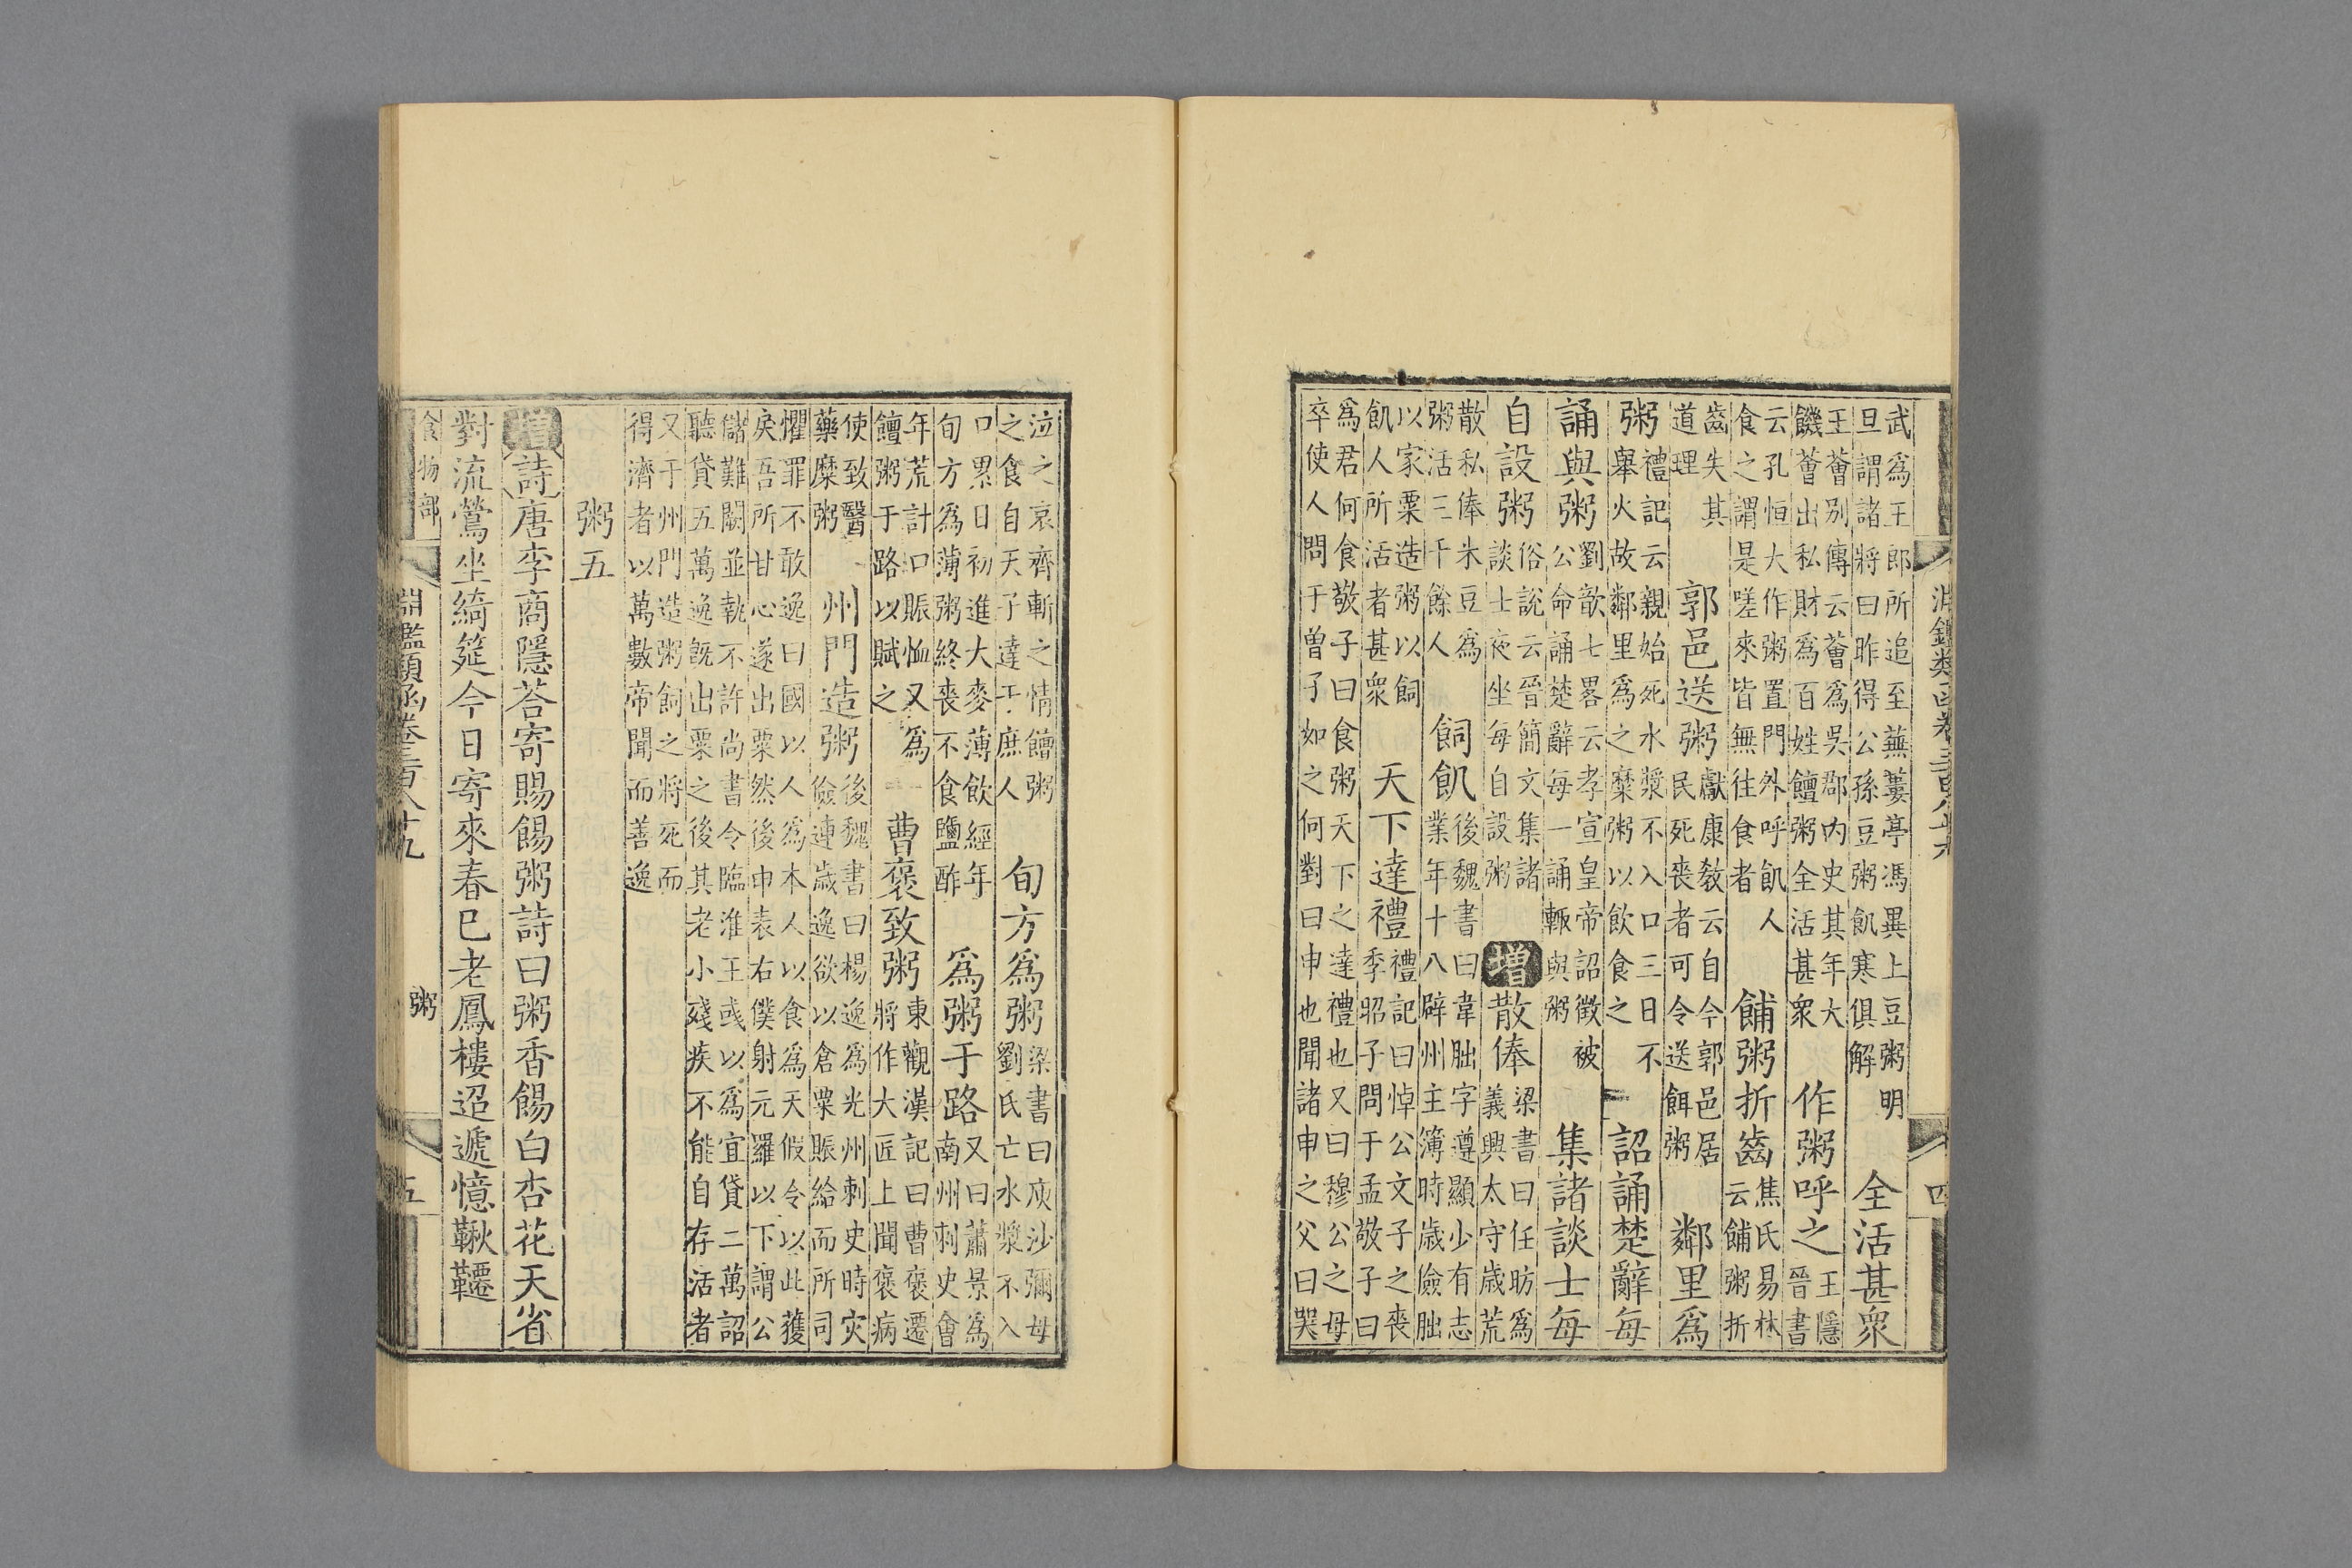 淵鑑類函卷三百八十九
四
武爲王郎所追至蕪蔞亭馮異上豆粥明
旦謂諸將曰昨得公孫豆粥飢寒俱解
全活甚衆
王薈別傳云薈爲吳郡內史其年大
饑薈出私財爲百姓饘粥全活甚衆
作粥呼之
王隱
晉書
云孔恒大作粥置門外呼飢人
食之謂是嗟來皆無往食者
餔粥折齒
焦氏易林
云餔粥折
齒失其
道理
郭邑送粥
獻康教云自今郭邑居
民死喪者可令送餌粥
鄰里爲
粥
禮記云親始死水漿不入口三日不
舉火故鄰里爲之糜粥以飲食之
詔誦楚辭每
誦與粥
劉歆七畧云孝宣皇帝詔徵被
公命誦楚辭每一誦輙與粥
集諸談士每
自設粥
俗說云晉簡文集諸
談士夜坐每自設粥
增
散俸
梁書曰任昉爲
義興太守歲荒
散私俸米豆爲
粥活三千餘人
飼飢
後魏書曰韋朏字遵顯少有志
業年十八辟州主簿時歲儉朏
以家粟造粥以飼
飢人所活者甚衆
天下達禮
禮記曰悼公文子之喪
季昭子問于孟敬子曰
爲君何食敬子曰食粥天下之達禮也又曰穆公之母
卒使人問于曾子如之何對曰申也聞諸申之父曰哭
泣之哀齊斬之情饘粥
之食自天子達于庶人
旬方爲粥
梁書曰庾沙彌母
劉氏亡水漿不入
口累日初進大麥薄飲經年
旬方爲薄粥終喪不食鹽酢
爲粥于路
又曰蕭景爲
南州刺史會
年荒計口賑恤又爲
饘粥于路以賦之
曹褒致粥
東觀漢記曰曹褒遷
將作大匠上聞褒病
使致醫
藥糜粥
州門造粥
後魏書曰楊逸爲光州刺史時灾
儉連歲逸欲以倉粟賑給而所司
懼罪不敢逸曰國以人爲本人以食爲天假令以此獲
戾吾所甘心遂出粟然後申表右僕射元羅以下謂公
儲難闕並執不許尚書令臨淮王彧以爲宜貸二萬詔
聽貸五萬逸旣出粟之後其老小殘疾不能自存活者
又于州門造粥飼之將死而
得濟者以萬數帝聞而善逸
粥五
增
詩
唐李商隱荅寄賜餳粥詩曰粥香餳白杏花天省
對流鶯坐綺筵今日寄來春巳老鳳樓迢遞憶鞦韆
食物部
淵鑑類函卷三百八十九
粥
五